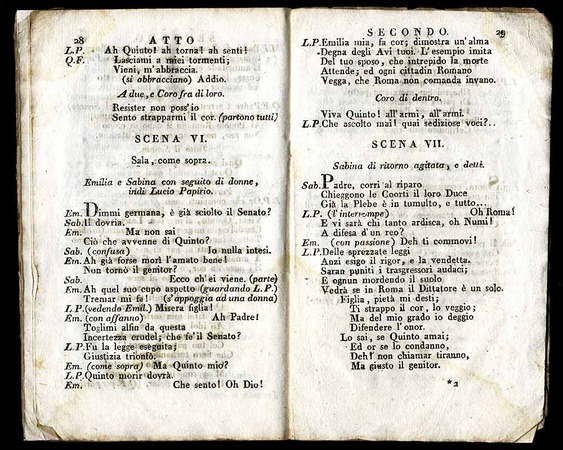 28 ATTO
L.P. Ah Quinto! ah torna! ah senti!
Q.F. Lasciami a miei tormenti;
Vieni, m'abbraccia.
(si abbracciano) Addio.
A due, e Coro fra di loro.
Resister non poss'io
Sento strapparmi il cor. (partono tutti)
SCENA VI.
Sala, come sopra.
Emilia e Sabina con seguito di donne,
indi Lucio Papirio.
Em. Dimmi germana, è già sciolto il Senato?
Sab. Il dovria.
Em. Ma non sai
Ciò che avvenne di Quinto?
Sab. (confusa) Io nulla intesi.
Em. Ah già forse morì l'amato bene!
Non tornò il genitor?
Sab. Ecco ch'ei viene. (parte)
Em. Ah quel suo cupo aspetto (guardando L.P.)
Tremar mi fa! (s'appoggia ad una donna)
L.P. (vedendo Emil.) Misera figlia!
Em. (con affanno) Ah Padre!
Toglimi alfin da questa
Incertezza crudel; che fe'il Senato?
L.P. Fu la legge eseguita;
Giustizia trionfò.
Em. (come sopra) Ma Quinto mio?
L.P. Quinto morir dovrà.
Em. Che sento! Oh Dio!
SECONDO. 29
L.P. Emilia mia, fa cor; dimostra un'alma
Degna degli Avi tuoi. L'esempio imita
Del tuo sposo, che intrepido la morte
Attende; ed ogni cittadin Romano
Vegga, che Roma non comanda invano.
Coro di dentro.
Viva Quinto! all'armi, all'armi.
L.P. Che ascolto mai! quai sediziose voci?..
SCENA VII.
Sabina di ritorno agitata, e detti.
Sab. Padre, corri al riparo
Chieggono le Coorti il loro Duce
Già la Plebe è in tumulto, e tutto...
L.P. (l'interrompe) Oh Roma!
E vi sarà chi tanto ardisca, oh Numi!
A difesa d'un reo?
Em. (con passione) Deh ti commovi!
L.P. Delle sprezzate leggi
Anzi esige il rigor, e la vendetta.
Saran puniti i trasgressori audaci;
E ognun mordendo il suolo
Vedrà se in Roma il Dittatore è un solo.
Figlia, pietà mi desti;
Ti strappo il cor, lo veggio;
Ma del mio grado io deggio
Difendere l'onor.
Lo sai, se Quinto amai;
Ed or se lo condanno,
Deh! non chiamar tiranno,
Ma giusto il genitor.
*2